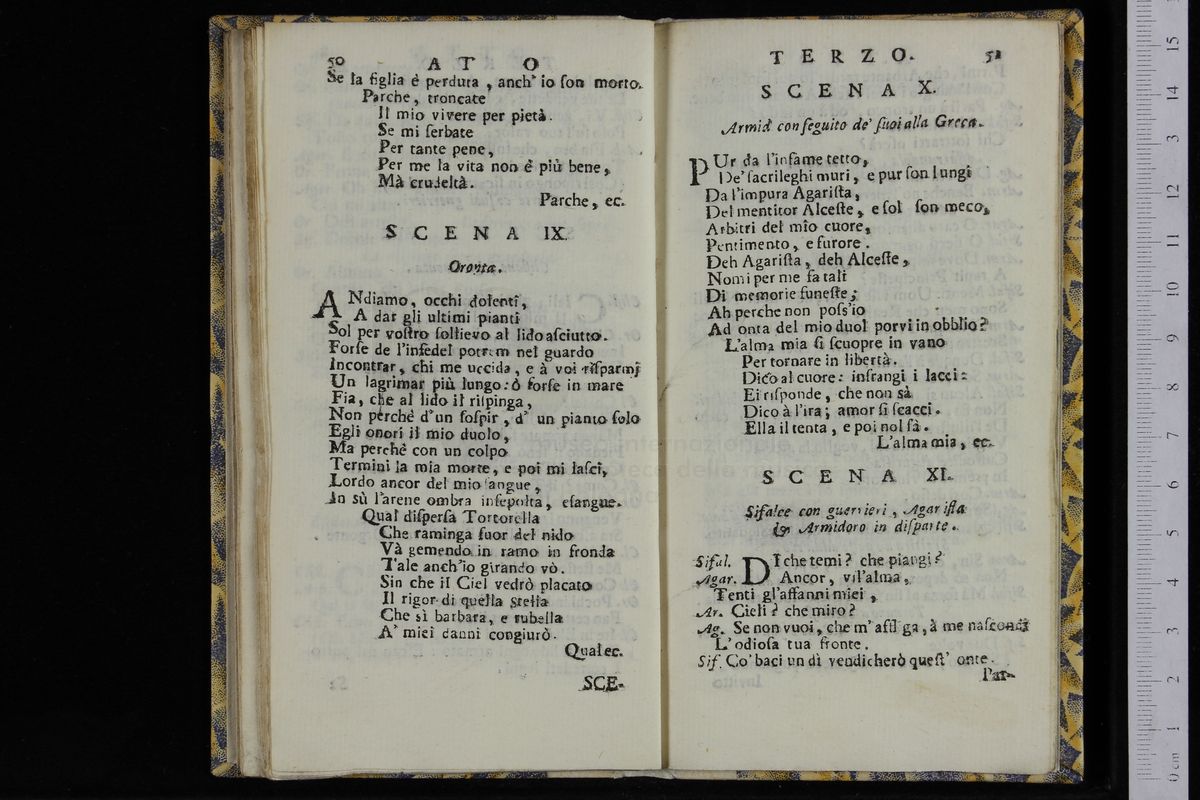 50 A T O
Se la figlia è perduta , anch' io ſon morto.
Parche, troncate
Il mio vivere per pietà.
Se mi ſerbate
Per tante pene,
Per me la vita non è più bene,
Mà crudeltà.
Parche, ec.
S C E N A IX.
Oronta.
ANdiamo, occhi dolenti,
A dar gli ultimi pianti
Sol per voſtro ſollievo al lido aſciutto.
Forſe de l'infedel potrem nel guardo
Incontrar, chi me uccida, e à voi riſparmj
Un lagrimar più lungo: ò forſe in mare
Fia, che al lido il riſpinga,
Non perchè d'un ſoſpir, d' un pianto ſolo
Egli onori il mio duolo,
Ma perchè con un colpo
Termini la mia morte, e poi mi laſci,
Lordo ancor del mio ſangue,
In sù l'arene ombra inſepolta, eſangue.
Qual diſperſa Tortorella
Che raminga fuor del nido
Và gemendo in ramo in fronda
Tale anch'io girando vò.
Sin che il Ciel vedrò placato
Il rigor di quella stella
Che sì barbara, e rubella
A' miei danni congiurò.
Qual ec.
SCE-
T E R Z O. 51
S C E N A X.
Armid con ſeguito de' ſuoi alla Greca.
PUr da l'infame tetto,
De' ſacrileghi muri, e pur ſon lungi
Da l'impura Agariſta,
Del mentitor Alceſte, e ſol ſon meco,
Arbitri del mio cuore,
Pentimento, e furore.
Deh Agariſta, deh Alceſte,
Nomi per me fatali
Di memorie funeſte;
Ah perche non poſs'io
Ad onta del mio duol porvi in obblio?
L'alma mia ſi ſcuopre in vano
Per tornare in libertà.
Dico al cuore: infrangi i lacci:
Ei riſponde, che non sà
Dico à l'ira; amor ſi ſcacci.
Ella il tenta, e poi nol ſà.
L'alma mia, ec.
S C E N A XI.
Sifalce con guerrieri, Agariſta
& Armidoro in diſparte.
Sifal. DI che temi? che piangi?
Agar. Ancor, vil'alma,
Tenti gl'affanni miei,
Ar. Cieli? che miro?
Ag. Se non vuoi, che m' affliga, à me naſcondi
L'odioſa tua fronte.
Sif. Co' baci un dì vendicherò queſt' onte.
Par-